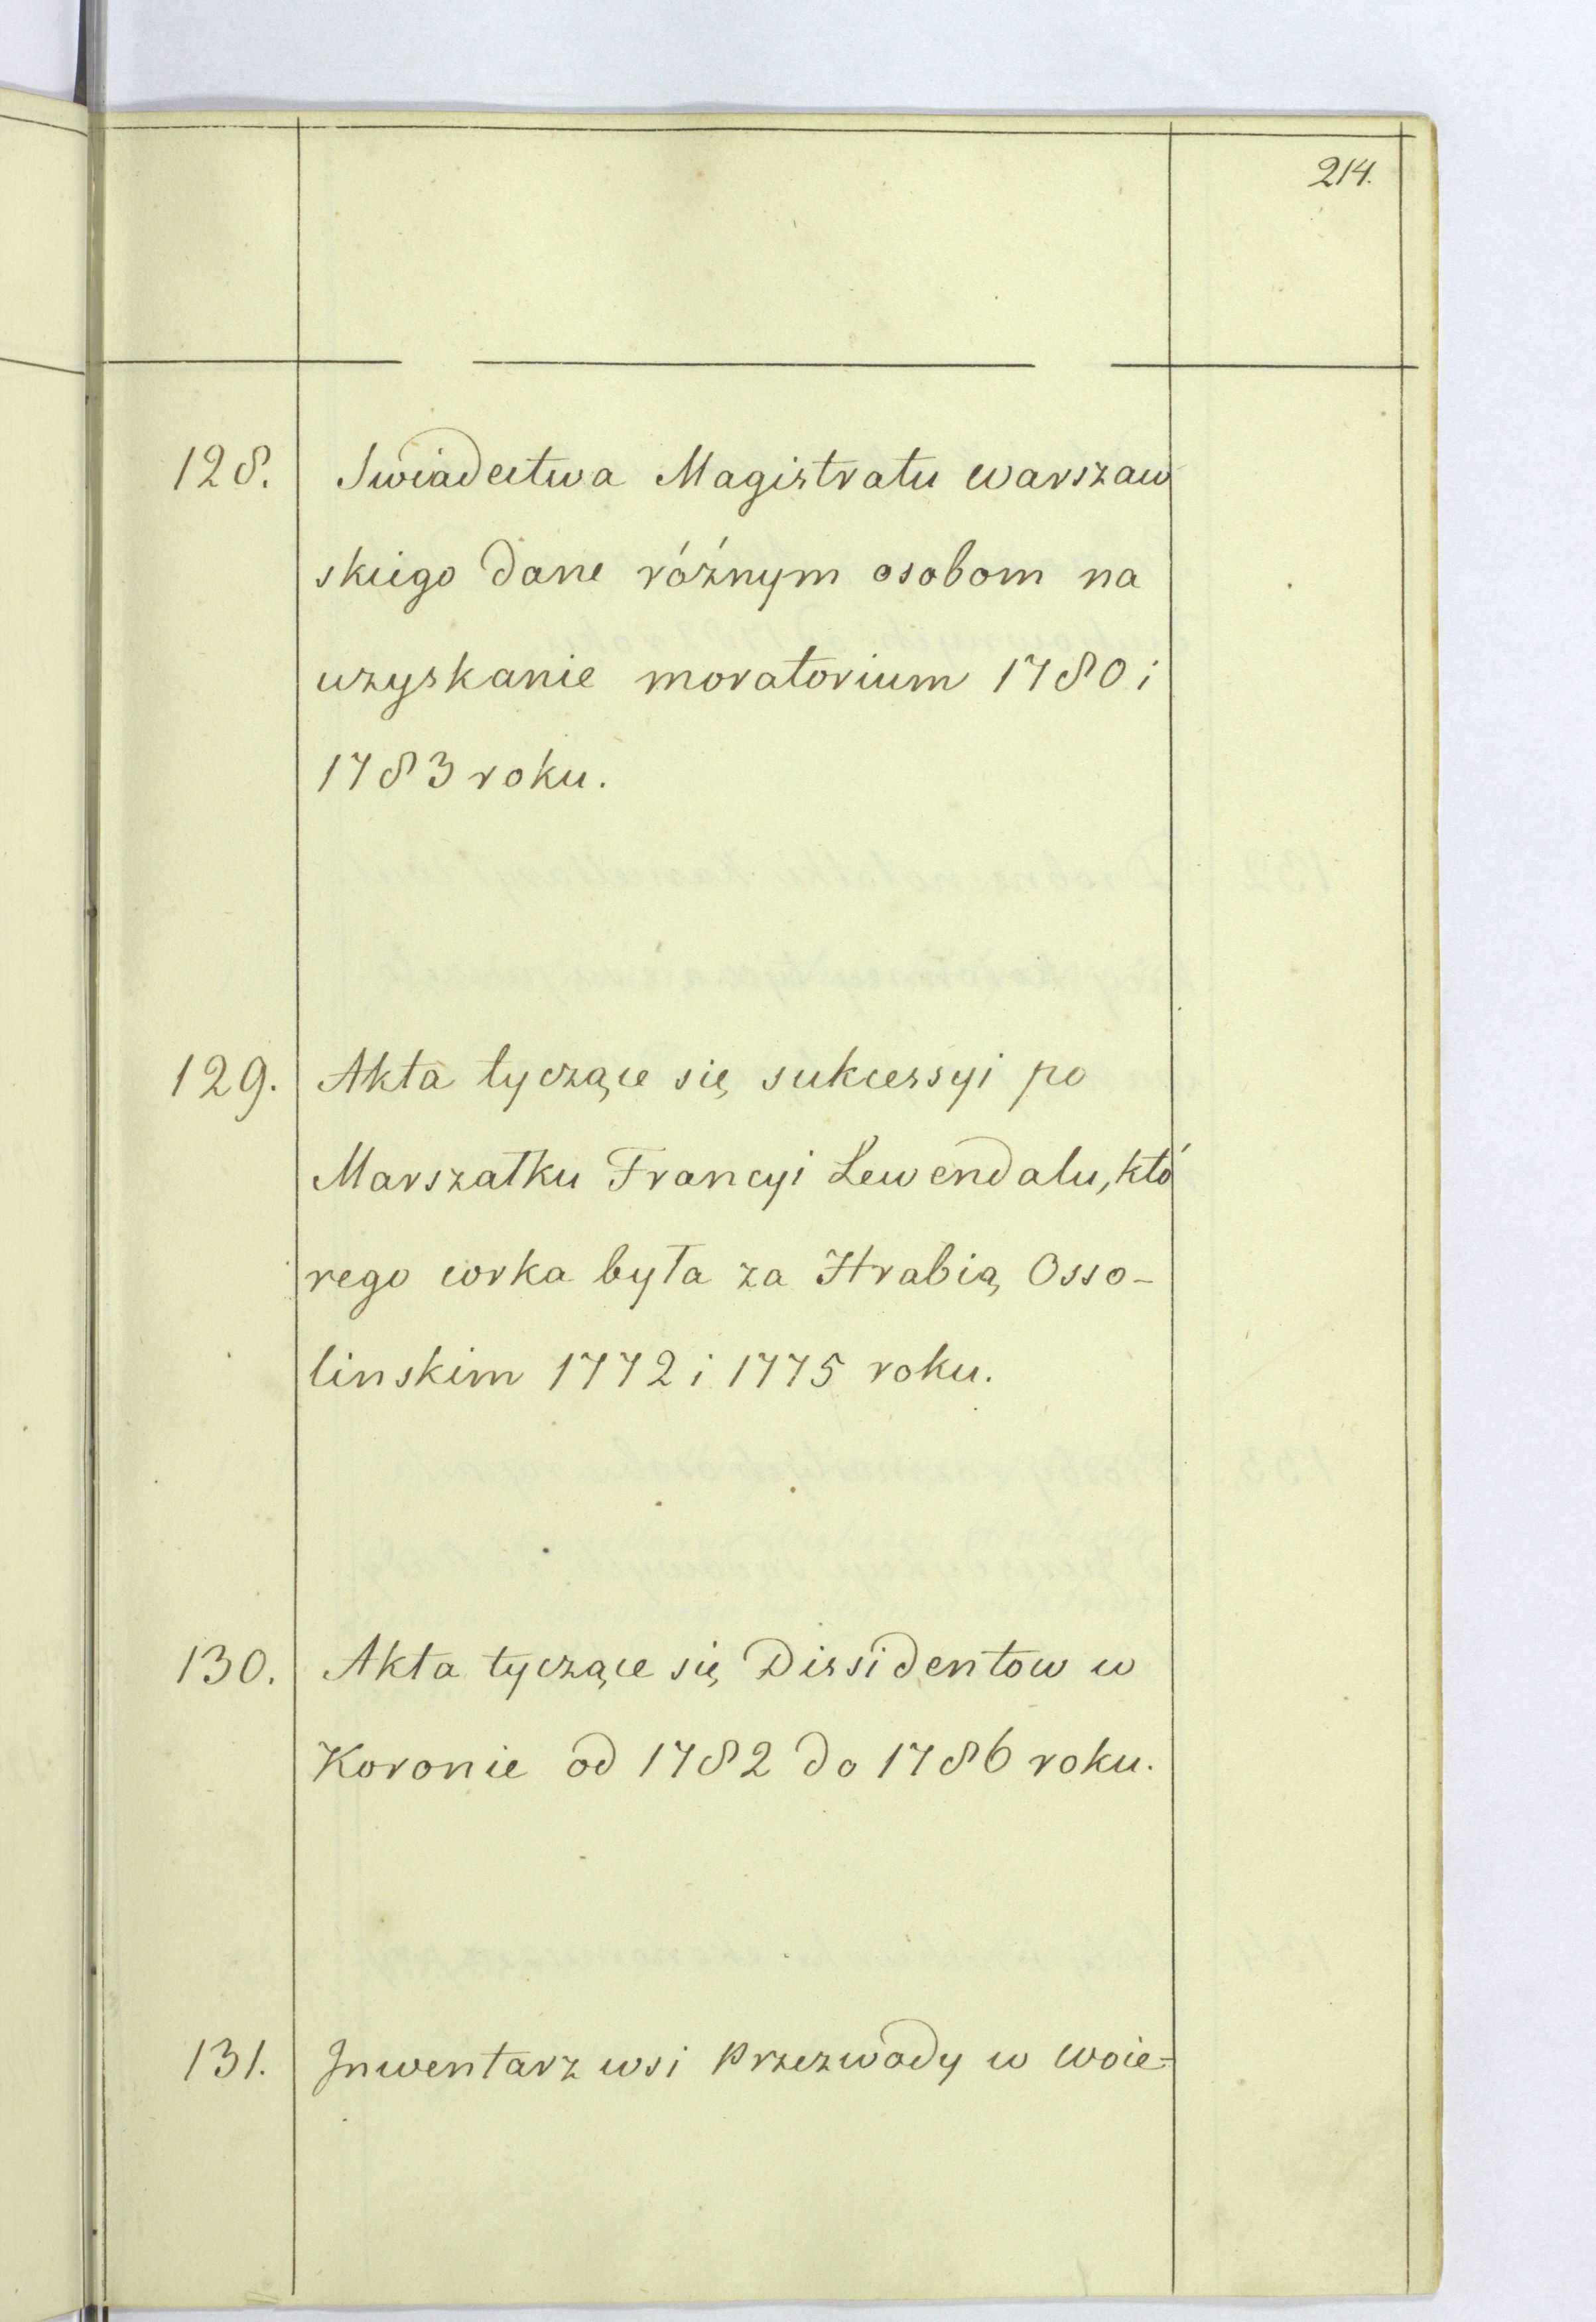 214.
128. Swiadectwa Magistratu warszaw
skiego dane różnym osobom na
uzyskanie moratorium 1780 i
1783 roku.
129. Akta tyczące się sukcessyi po
Marszałku Francyi Lewendalu, któ
rego corka była za Hrabią Osso-
linskim 1772 i 1775 roku.
130. Akta tyczące się Dissidentow w
Koronie od 1782 do 1786 roku.
131. Inwentarz wsi Przezwody w woie=